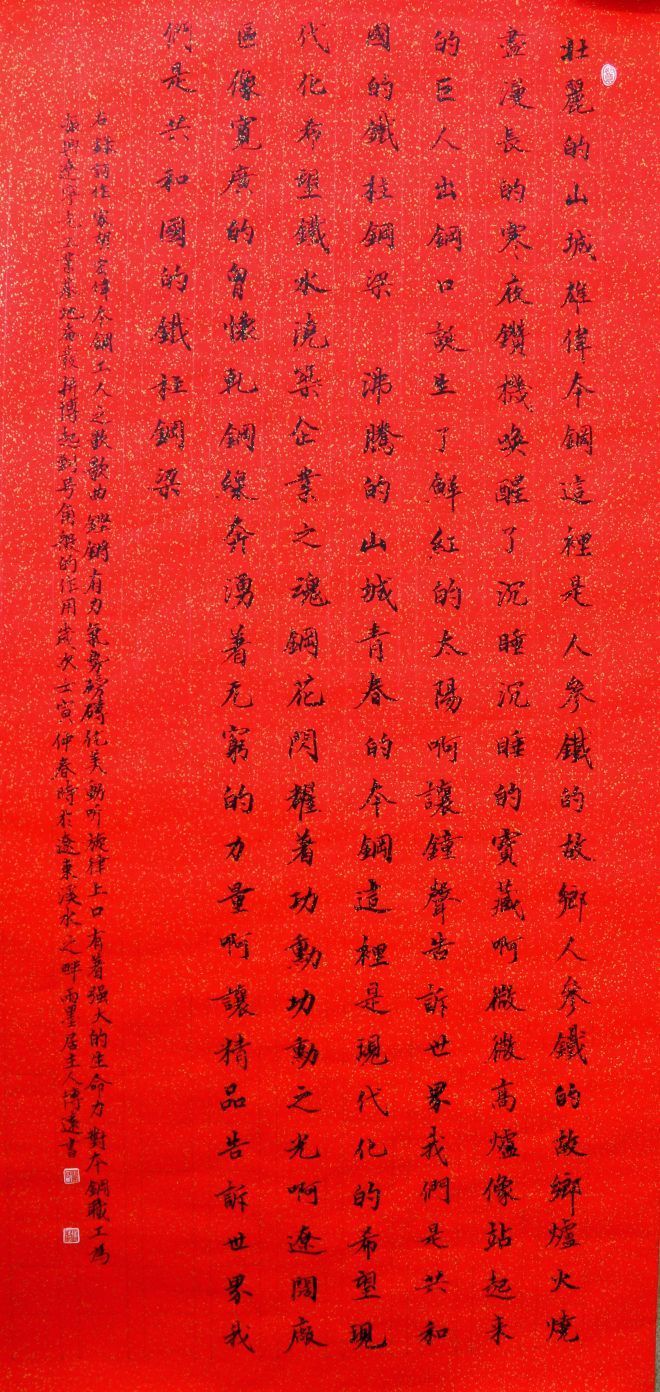 壯麗的山城雄偉本鋼這裡是人參鐵的故鄉人參鐵的故鄉爐火燒
盡漫長的寒夜鑽機喚醒了沉睡沉睡的寶藏啊巍巍高爐像站起來
的巨人出鋼口誕生了鮮紅的太陽啊讓鐘聲告訴世界我們是共和
國的鐵柱鋼梁 沸騰的山城青春的本鋼這裡是現代化的希望現
代化希望鐵水澆築企業之魂鋼花閃耀著功勳功勳之光啊遼闊廠
區像寬廣的胷懷軋鋼線奔湧著无窮的力量啊讓精品告訴世界我
們是共和國的鐵柱鋼梁
右錄詞作家胡宏偉本鋼工人之歌歌曲鏗鏘有力氣勢磅礴優美動听旋律上口有着强大的生命力對本鋼職工為
振興遼寧老工業基地奮發拼搏起到号角般的作用歲次壬寅仲春時於遼東溪水之畔雨墨居主人博遠書